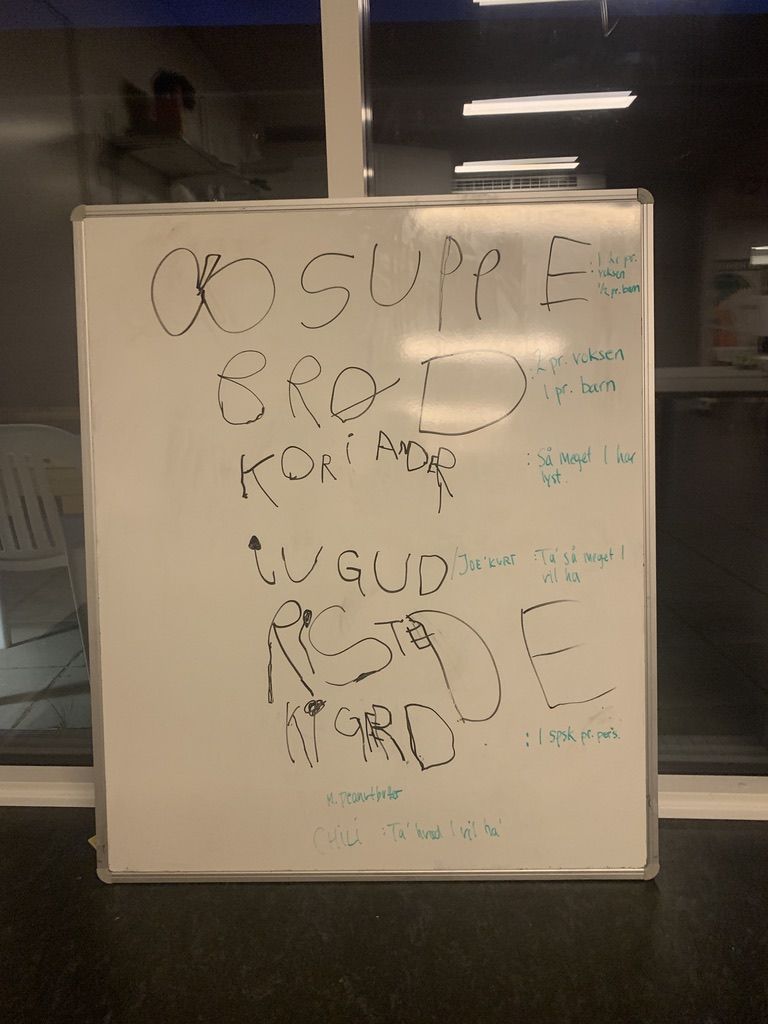 SUPPE : 1 ltr pr. voksen 1/2 pr. barn
BRØD : 2 pr. voksen 1 pr. barn
KORiANDER : Så meget I har lyst.
iUGUD /JOE'KURT : Ta' så meget I vil ha
RiSTEDE
KiGÆRD : 1 spsk pr. pers.
M. Peanutbutter
CHILI : Ta' hvad I vil ha'